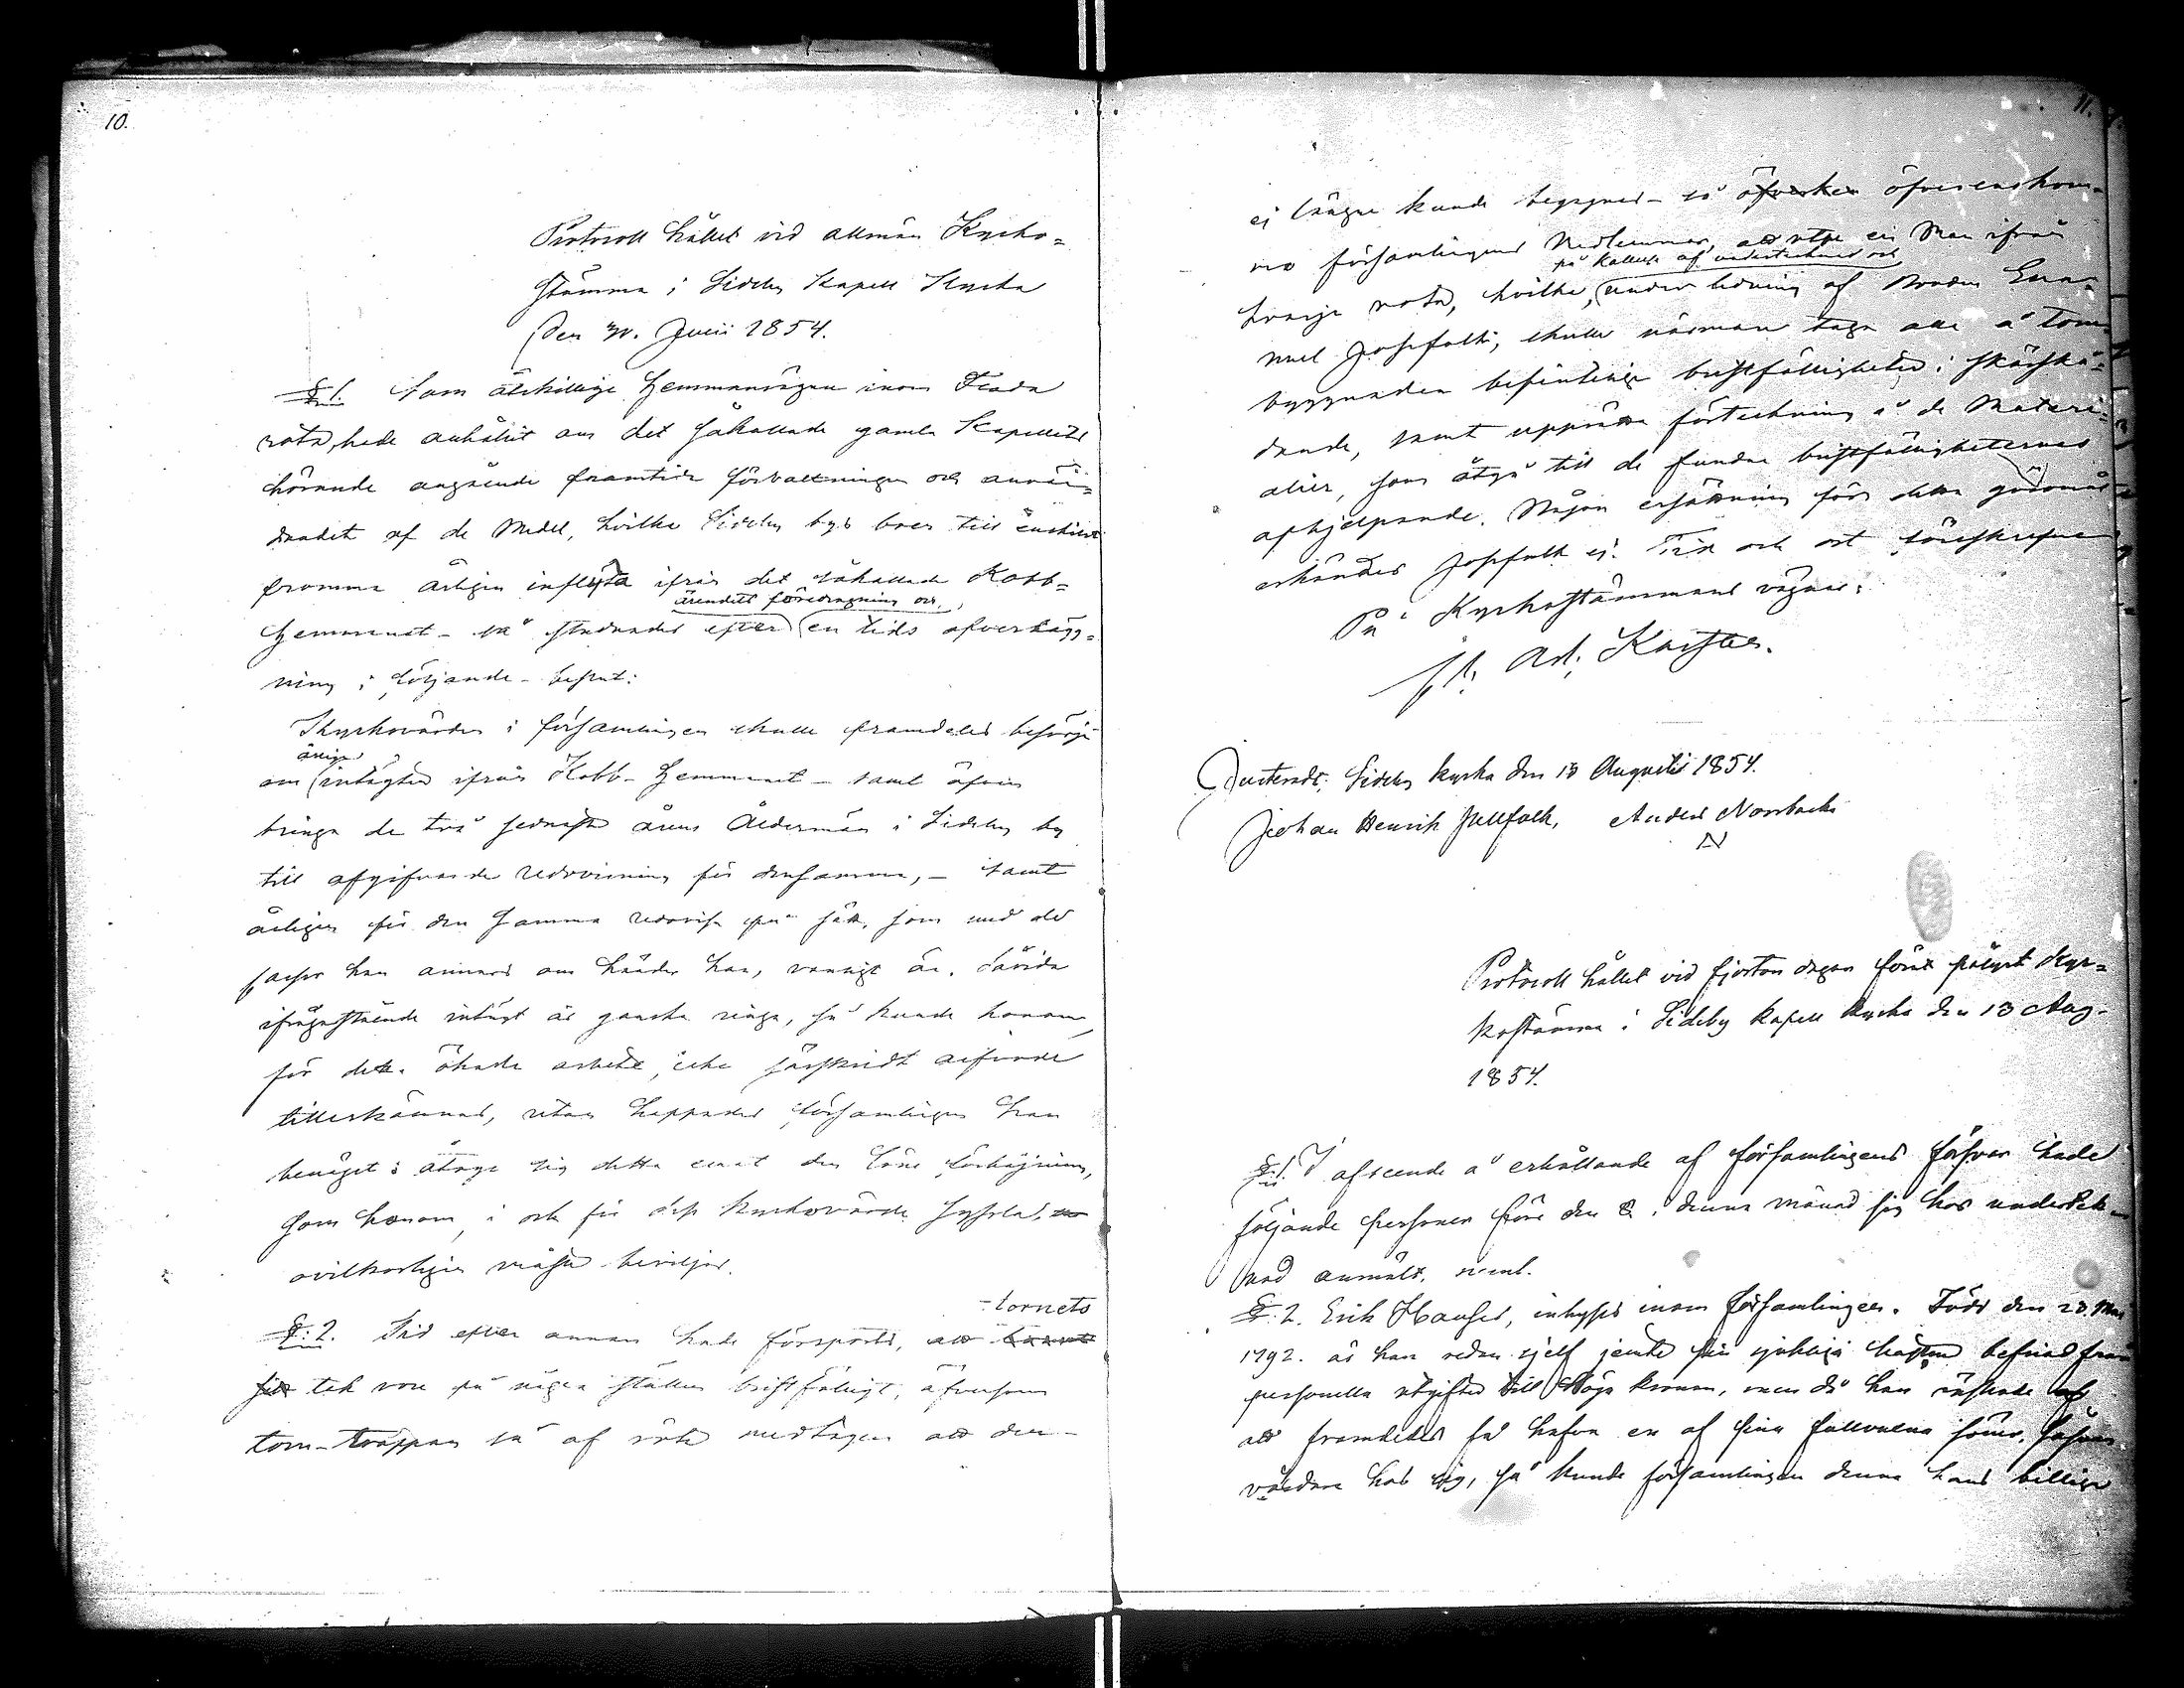 10.
Protocoll hållet vid allmän Kyrko=
stämma i Sideby Kapell Kyrka
den Juni 1854.
§ 1. Som åtskillige Hemmansägare inom
rota, hade anhållit om det såkallade gamla Kapellets
hörande angående framtida förvaltningen och använ=
dandet af de medel, hvilka Sideby bys boer till enskild
fromma årligen inflyta ifrån det såkallade Kobb=
ärendets föredragning och
Hemmanet - så stadnades efter en tids öfverlägg=
ning i följande beslut:
Kyrkovärden i församlingen skulle framdeles besörja
årliga
om intägten ifrån Kobb-Hemmanet - samt äfven
bringa de två sednaste årens Åldermän i Sideby by
till afgifvande redovisning för densamma, - samt
årligen för den samma redovisa på sätt, som med de
han annars om händer har, vanligt är. Såvida
ifrågastående intägt är ganska ringa, så kunde honom
för detta ökade arbete, icke särskildt arfvode
tillerkännas, utan hoppades församlingen han
benäget åtoge sig detta emot den löne förhöjning,
som honom, i och för dess kyrkovärds syssla,
ovilkorligen måste beviljas.
- tornets
§: 2. Tid efter annan hade försports, att
tak vore på några ställen bristfälligt, äfvensom
torn-trappan så af röta medtagen att den -
11.
ej längre kunde begagnas - så öfverenskom=
mo församlingens Medlemmar, att utse en Man ifrån
på kallelse af undertecknad och
hvarje rota, hvilka, under ledning af Bonden Ema=
nuel Josfolk, skulle närmare taga alla å torn
byggnaden befintliga bristfälligheter i skärskå=
dande, samt upprätta förteckning å de Materi=
alier, som åtgå till de fundna bristfälligheternas
afhjelpande. Någon ersättning för detta göromål
erkändes Josfolk ej. Tid och ort föreskrefne
På Kyrkostämmans vägnar:
Ad:
Justeradt; Sideby kyrka den 13 Augusti 1854.
Johan Henrik Anders Norrback
Protocoll hållet vid fjorton dagar förut pålyst Kyr=
kostämma i Sideby Kapell Kyrka den 13 Aug.
1854.
§: 1. I afseende å erhållande af församlingens försvar hade
följande personer före den 8. i denna månad sig hos underteck=
nad anmält, neml.
§: 2. Erik Hanses, inhyses inom församlingen. Född den 23. Maj
1792. är han redan sjelf jemte sin sjukliga hustru befriad från
personella utgifter till Höga kronan, men då han önskade
att framdeles få hafva en af sina fullvuxna söner,
vårdare hos sig, så kunde församlingen denna hans billiga